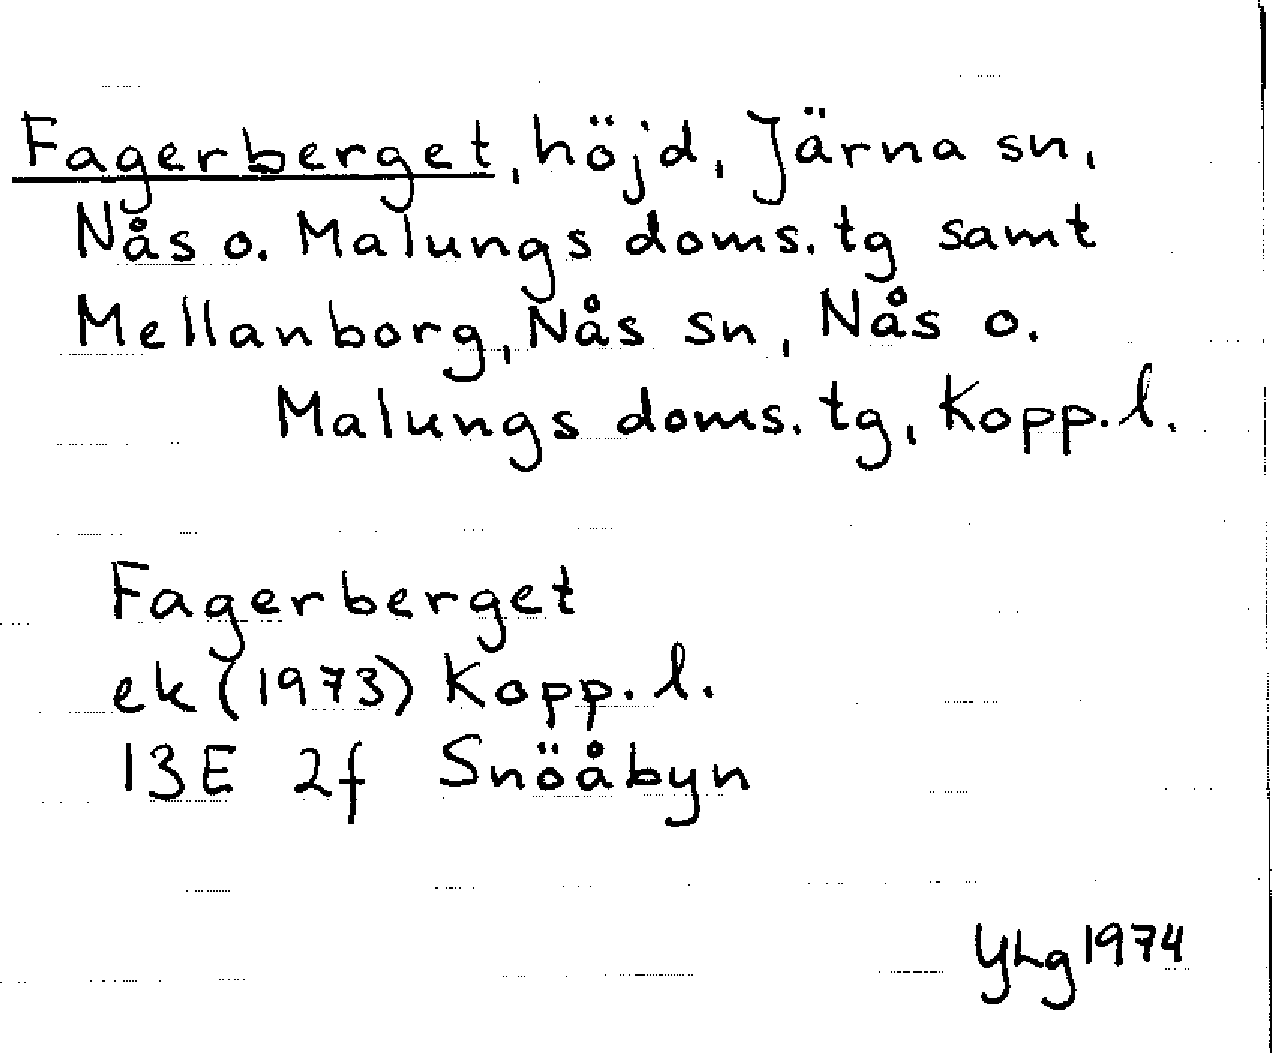 Fagerberget, höjd, Järna sn,
Nås o. Malungs doms. tg samt
Mellanborg, Nås sn, Nås o.
Malungs doms. tg, Kopp. l.
Fagerberget
ek (1973) Kopp. l.
13E 2f Snöåbyn
YLg 1974